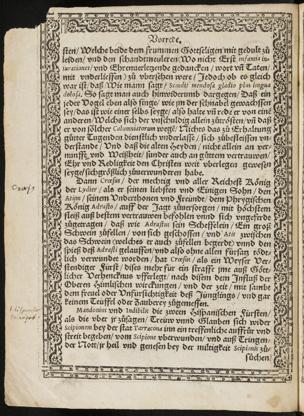 Vorrede.
sten/ Welche beide dem frummen Gottseligen mit gedult zu
leiden/ vnd den schandtmeuler en/ Wo nicht Erst infamis in-
iurationes/ vnd Ehrenverletzerische gedancken/ wort vnd Taten
mit vnderliessen/ zu vbersehen were/ Jedoch ob es gleich
war ist/ daß Wie mann sagt/ Scindit mendosa gladio plus lingua
dolosa. So sagt man auch hinwiderumb dargegen/ Daß ein
jeder Vogel eben also singe/ wie jm der schnabel gewachssen
sey/ das ist wie einer selbs seye/ also halte vnd rede er von eine
anderen/ Welchs sich der vnschuldig allein zutrösten/ vnd daß
er von sölcher Calumniatorum wegen/ Nichts das zu Erhaltung
gutter Tugenden dienstlich vnderlasse/ sich zubefleissen vn-
derstande/ Vnd daß die alten Heyden/ nicht allein an ver-
nunfft vnd Weißheit/ sunder auch an guttem vertrauwen/
Ehr vnd Redligkeit den Christen weit vberlegen gewesen
seyge/ sich gröslich zuuerwundern habe.
Dann Cræsus/ der mechtig vnd aller Reichest König
der Lydier/ als er seinen liebsten vnd Einigen Sohn/ den
Atym/ seinem Verdorbenen vnd Freunde/ dem Phrygischen
König Adrasto/ auff der Jagt zuuersorgen/ mit höchstem
fleiß auß bestem vertrauwen befohlen vnnd sich vngeferde
zugetragen/ daß wie Adrastus sin Schefelein/ Ein groß
Schwein zufellen/ von sich geschossen/ vnd Atin zwischen
das Schwein (welches er auch zufellen begerdt) vnnd den
spieß deß Adrasti gelauffen/ vnd also ohne allen fürsatz tödt-
lich verwundet worden/ hat Cræsus/ als ein Weyser Ver-
stendiger Fürst/ diso mehr für ein straffe jme auß Gött-
licher Verhencknus vfferlegt/ nach disem dem Influs der
Oberen Himlischen wirckungen/ vnd der zeit/ mit sambt
dem freuel oder Vnfürsichtigkeit deß Jünglings/ vnd gar
keinem Teuffel oder Zauberey zugemessen.
Mandonius vnd Indibilis die zween Hispanischen Fürsten/
als die vber jr zusagen/ Treüw vnnd Glauben sich wider
Scipionem bey der stat Tarracona inn ein treffenliche auffrür vnd
streit begeben/ vom Scipione vberwunden/ vnd auß Tringen-
der Nott/ jr heil vnd genesen bey der mütigkeit Scipionis zu-
süchen/
Cræsus